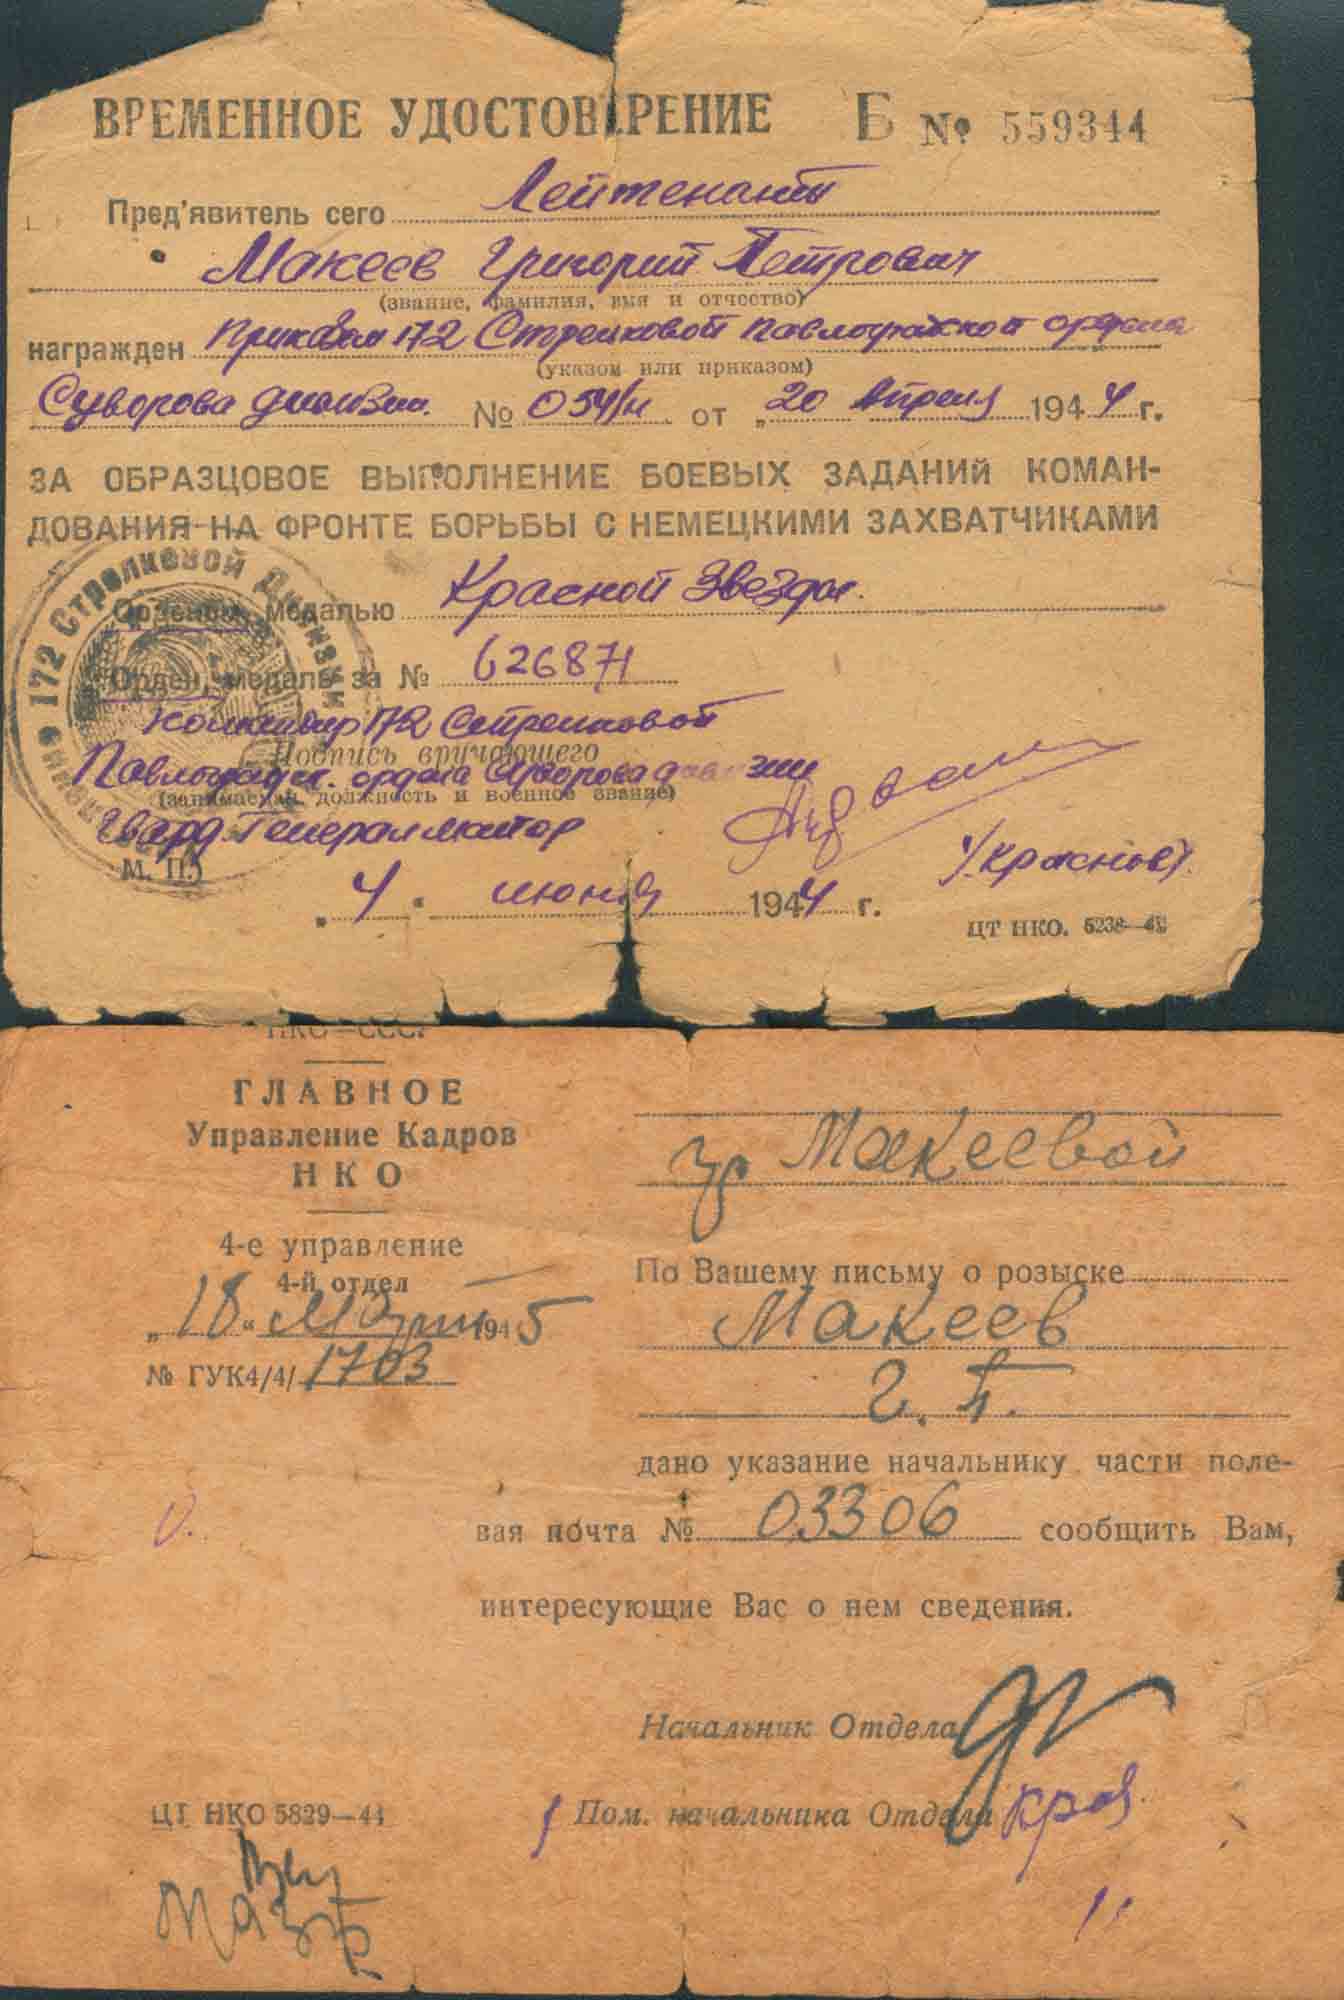 ВРЕМЕННОЕ УДОСТОВЕРЕНИЕ Б № 559344
Пред'явитель сего Лейтенант
Макеев Григорий Петрович
(звание, фамилия, имя и отчество)
награжден Приказом 172 Стрелковой Павлоградской ордена
(указом или приказом)
Суворова дивизии. № 054/н от „20 Апреля 1944 г.
ЗА ОБРАЗЦОВОЕ ВЫПОЛНЕНИЕ БОЕВЫХ ЗАДАНИЙ КОМАН-
ДОВАНИЯ НА ФРОНТЕ БОРЬБЫ С НЕМЕЦКИМИ ЗАХВАТЧИКАМИ
172 Стрелковой Дивизии
Орденом, медалью Красной Звезды.
Орден, медаль за № 626871
Командир 172 Стрелковой
Подпись вручающего
Павлоградск. ордена Суворова дивизии
(занимаемая должность и военное звание)
Гвард. Генерал майор
/Краснов/.
М. П.
„4" июня 1944 г.
ЦТ НКО. 5238—43
НКО—СССР
ГЛАВНОЕ
Управление Кадров
НКО
4-е управление
4-й отдел
„18" Марта 1945
№ ГУК4/4/1703
гр Макеевой
По Вашему письму о розыске
Макеев
Г. П.
дано указание начальнику части поле-
вая почта № 03306 сообщить Вам,
интересующие Вас о нем сведения.
Начальник Отдела
Пом. начальника Отдела
ЦТ НКО 5829—44